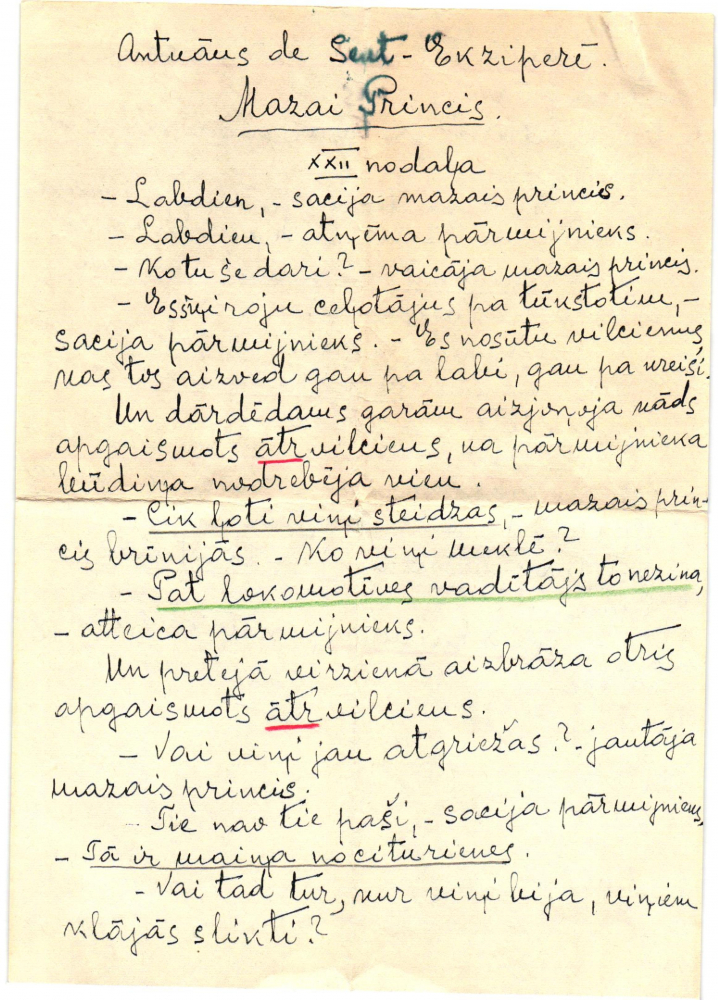 Antuāns de Sent-Ekziperē.
Mazai Princis.
XXII nodaļa
- Labdien, - sacīja mazais princis.
- Labdien, - atņēma pārmijnieks.
- Ko tu še dari? - vaicāja mazais princis.
- Es šķiroju ceļotājus pa tūkstotim, -
sacīja pārmijnieks. - Es nosūtu vilcienus,
kas tos aizved gan pa labi, gan pa kreisi.
Un dārdēdams garām aizjoņoja kāds
apgaismots ātrvilciens, ka pārmijnieka
būdiņa nodrebēja vien.
- Cik ļoti viņi steidzas, - mazais prin-
cis brīnījās. - Ko viņi meklē?
- Pat lokomotīves vadītājs to nezina,
- atteica pārmijnieks.
Un pretējā virzienā aizbrāza otrs
apgaismots ātrvilciens.
- Vai viņi jau atgriežas? - jautāja
mazais princis.
- Tie nav tie paši, - sacīja pārmijnieks,
- Tā ir maiņa no citurienes.
- Vai tad tur, kur viņi bija, viņiem
klājās slikti?